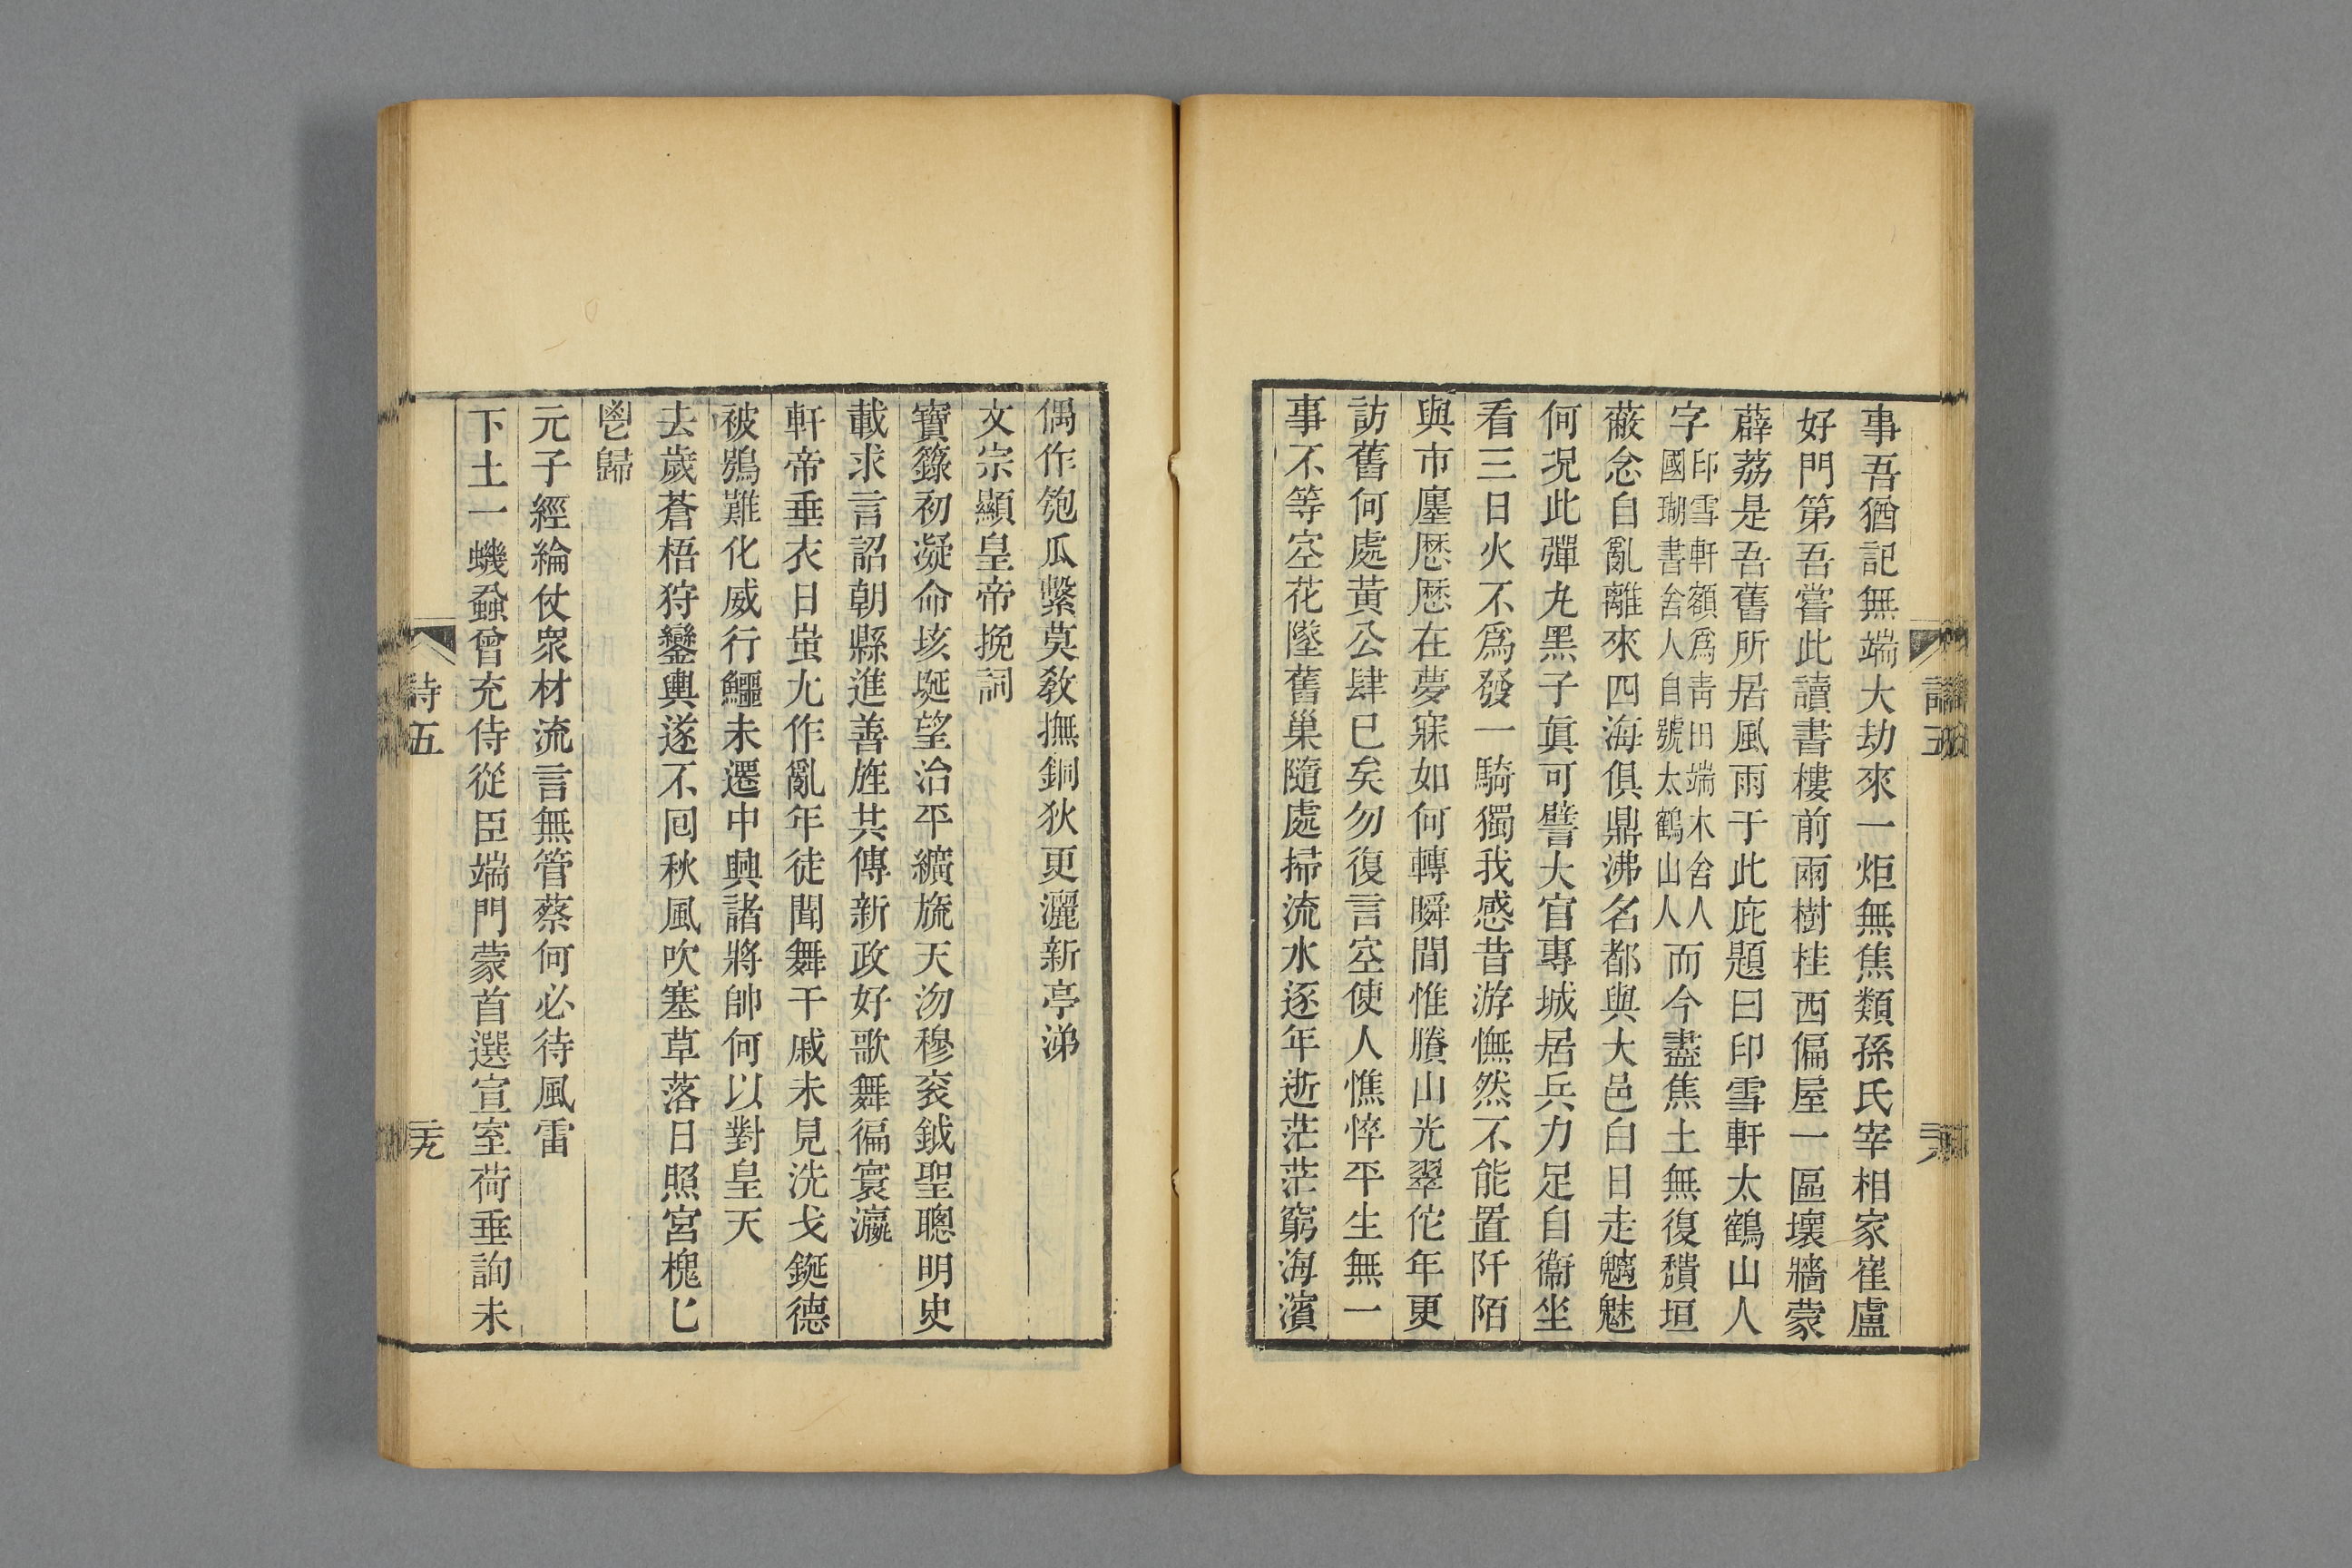 事吾猶記無端大劫來一炬無焦類孫氏宰相家崔盧
好門第吾嘗此讀書樓前兩樹桂西偏屋一區壞牆蒙
薜荔是吾舊所居風雨于此庇題曰印雪軒太鶴山人
字印雪軒額爲靑田端木舍人國瑚書舍人自號太鶴山人而今盡焦土無復穨垣
蔽忿自亂離來四海俱鼎沸名都與大邑白日走魑魅
何況此彈丸黑子眞可譬大官專城居兵力足自衞坐
看三日火不爲發一騎獨我感昔游憮然不能置阡陌
與市廛歷歷在夢寐如何轉瞬間惟賸山光翠佗年更
訪舊何處黃公肆已矣勿復言空使人憔悴平生無一
事不等空花墜舊巢隨處掃流水逐年逝茫茫窮海濱
偶作匏瓜繫莫敎撫銅狄更灑新亭涕
文宗顯皇帝挽詞
寶籙初凝命垓埏望治平纊旒天沕穆衮鉞聖聰明史
載求言詔朝縣進善旌共傳新政好歌舞徧寰瀛
軒帝垂衣日蚩尤作亂年徒聞舞干戚未見洗戈鋋德
被鴞難化威行鱷未遷中興諸將帥何以對皇天
去歲蒼梧狩鑾輿遂不回秋風吹塞草落日照宮槐匕
鬯歸
元子經綸仗衆材流言無管蔡何必待風雷
下土一蟣蝨曾充侍從臣端門蒙首選宣室荷垂詢未
詩五
元